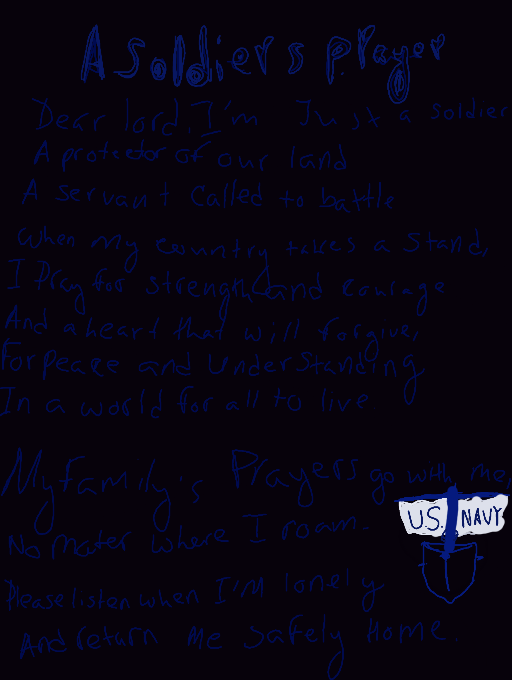 A soldiers prayer
Dear lord. I'm Just a soldier
A protector of our land
A servant Called to battle
when my country takes a Stand,
I Pray for strength and courage
And a heart that will forgive,
For peace and Understanding
In a world for all to live
My family's Prayers go with me,
No mater where I roam.
Please listen when I'M lonely
And return Me safely Home.
U.S. NAVY